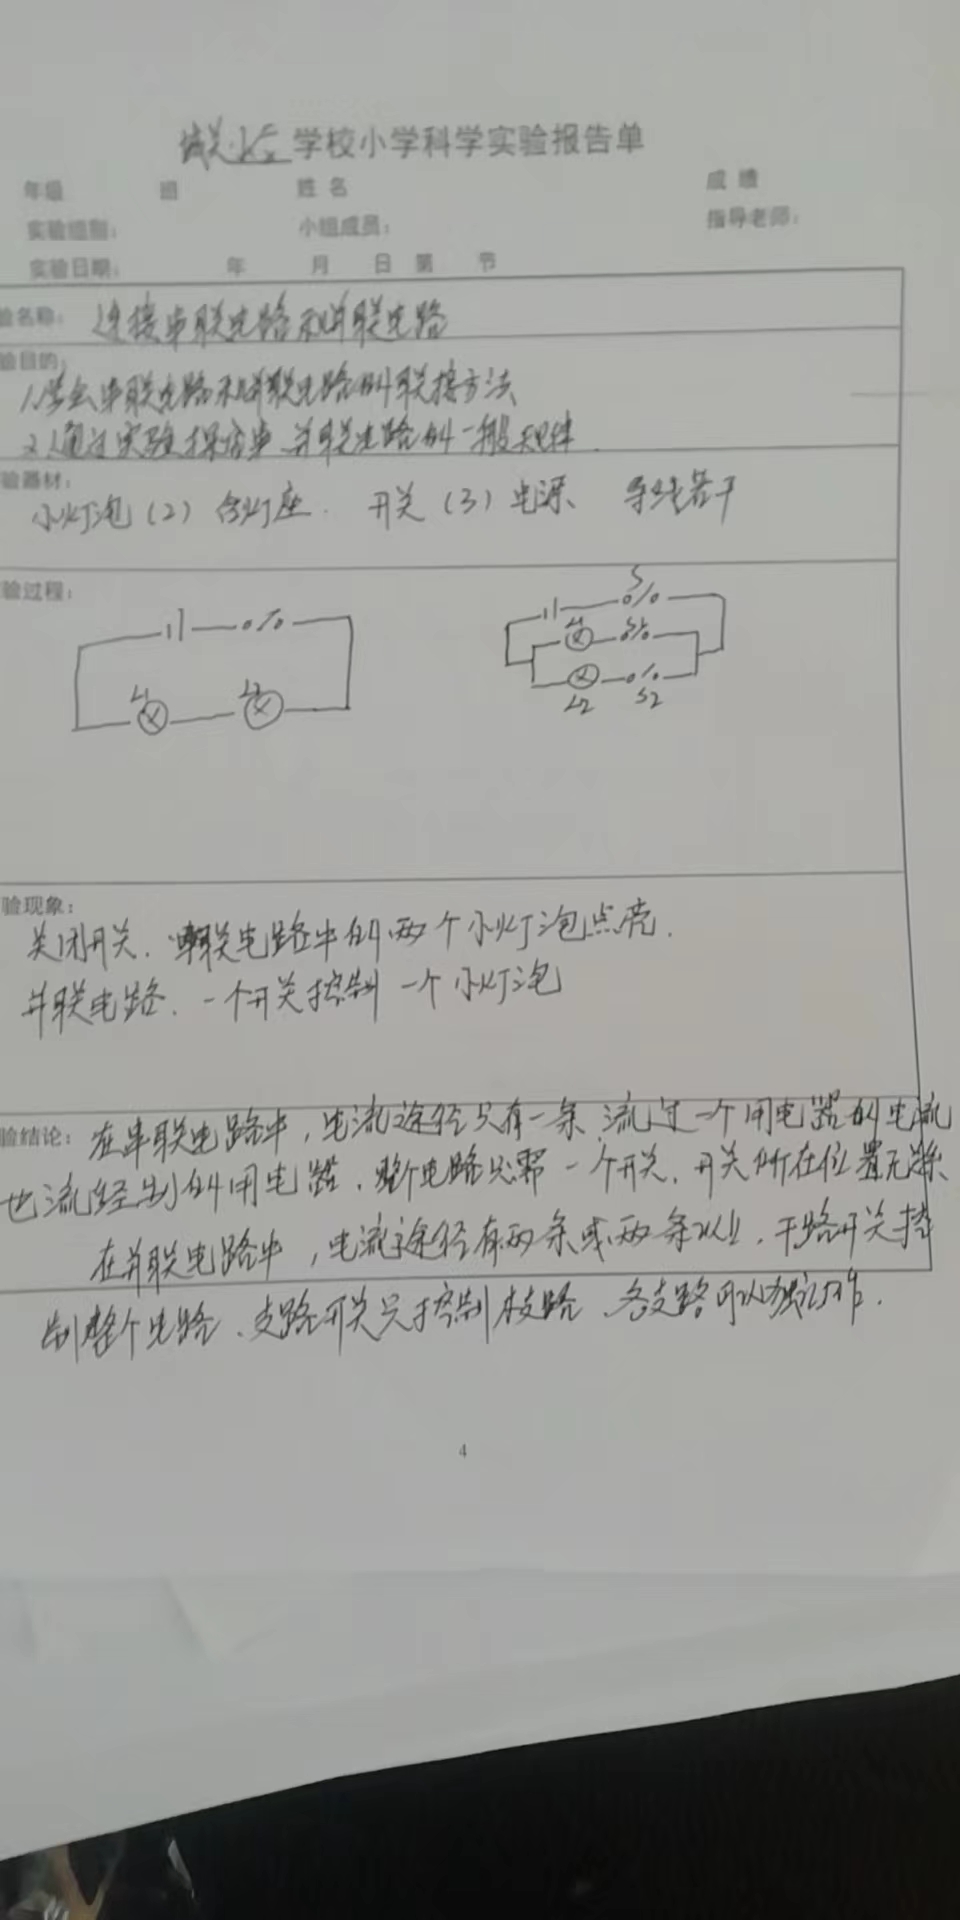 城关小学 学校小学科学实验报告单
年级 班 姓名 成绩
实验组别： 小组成员： 指导老师：
实验日期： 年 月 日 第 节
验名称： 连接串联电路和并联电路
验目的：
1、学会串联电路和并联电路的联接方法
2、通过实验探究串、并联电路的一般规律.
验器材：
小灯泡（2）含灯座. 开关（3）电源、 导线若干
验过程：
S
L1 S1
L1 L2
L2 S2
验现象：
关闭开关. 串联电路中的两个小灯泡点亮.
并联电路. 一个开关控制一个小灯泡
验结论： 在串联电路中，电流途径只有一条.流过一个用电器的电流
也流经别的用电器. 整个电路只需一个开关. 开关所在位置无
在并联电路中，电流途径有两条或两条以上. 干路开关控
制整个电路、支路开关只控制本支路. 各支路可以独立工作.
4